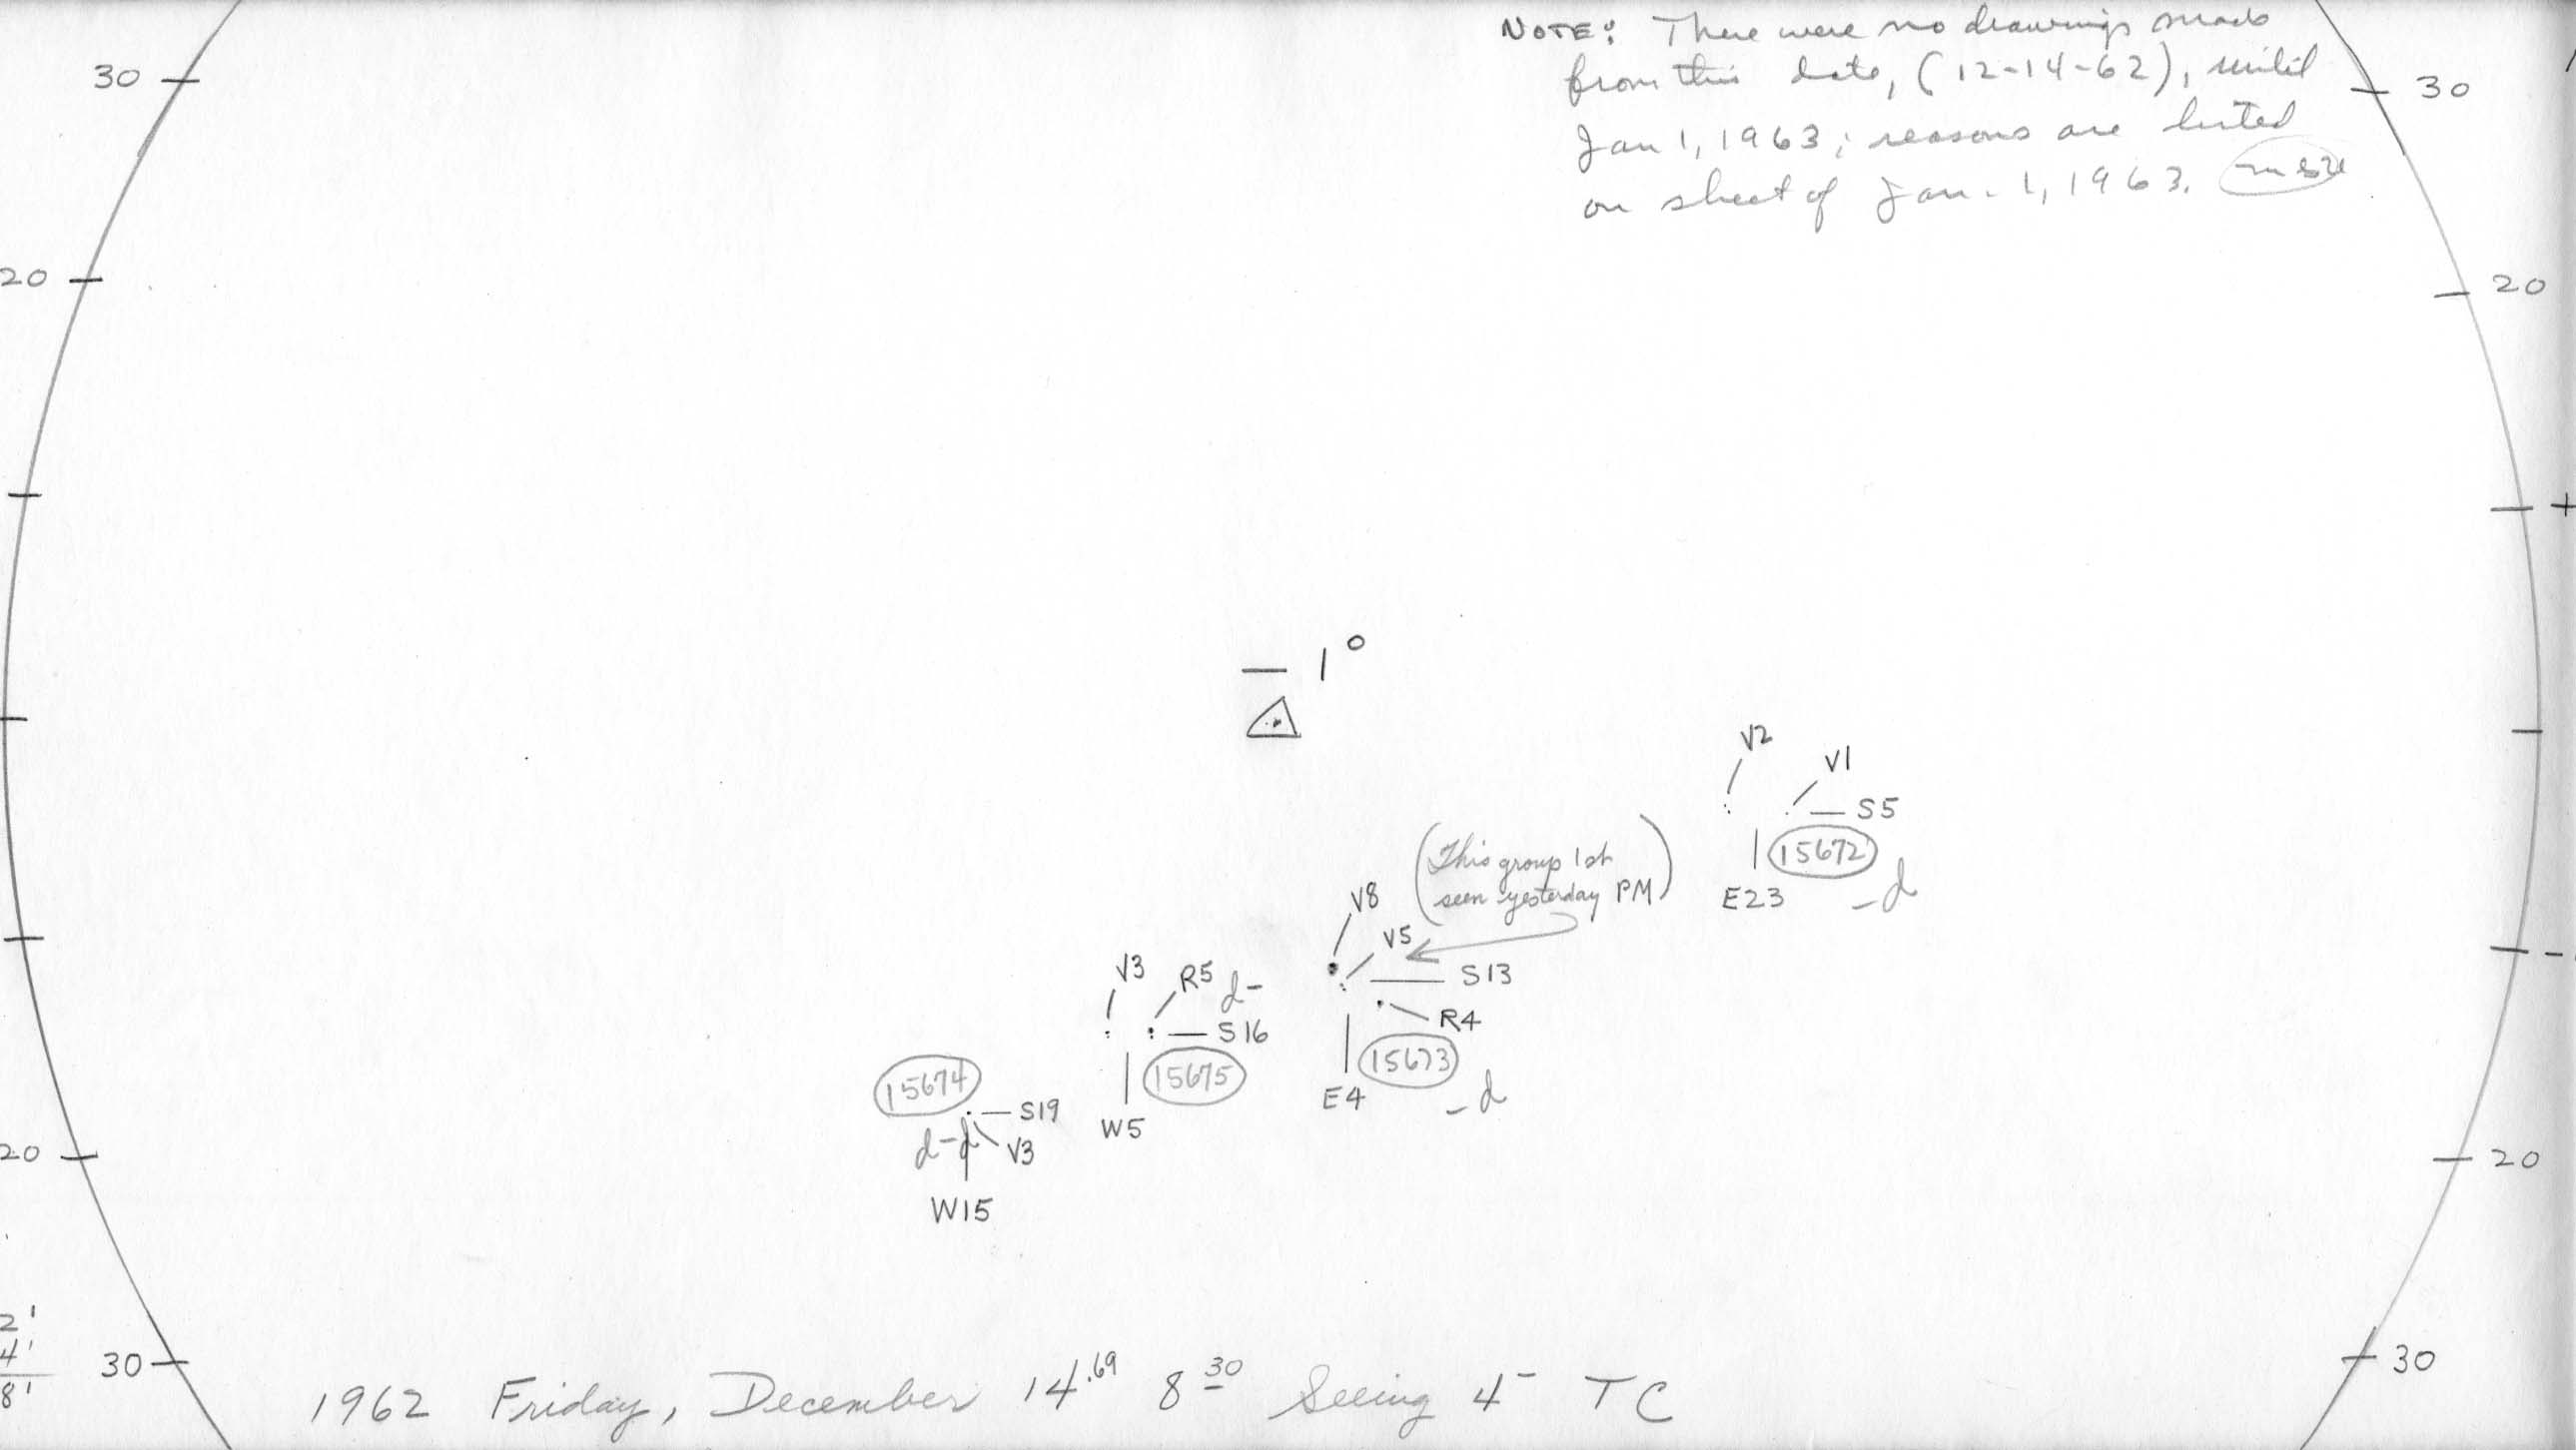 NOTE: There were no drawings made
from this date, (12-14-62), until
Jan 1, 1963; reasons are listed
on sheet of Jan. 1, 1963.
30
30
20
20
+
— 1°
V2
V1
S5
15672
E23
-d
(This group 1st
seen yesterday PM)
V8
V5
S13
R4
15673
E4
-d
V3
R5
d-
S16
15675
W5
15674
S19
d-d
V3
W15
-
20
20
2'
4'
8'
30
30
1962 Friday, December 14.69 8 30 Seeing 4- TC